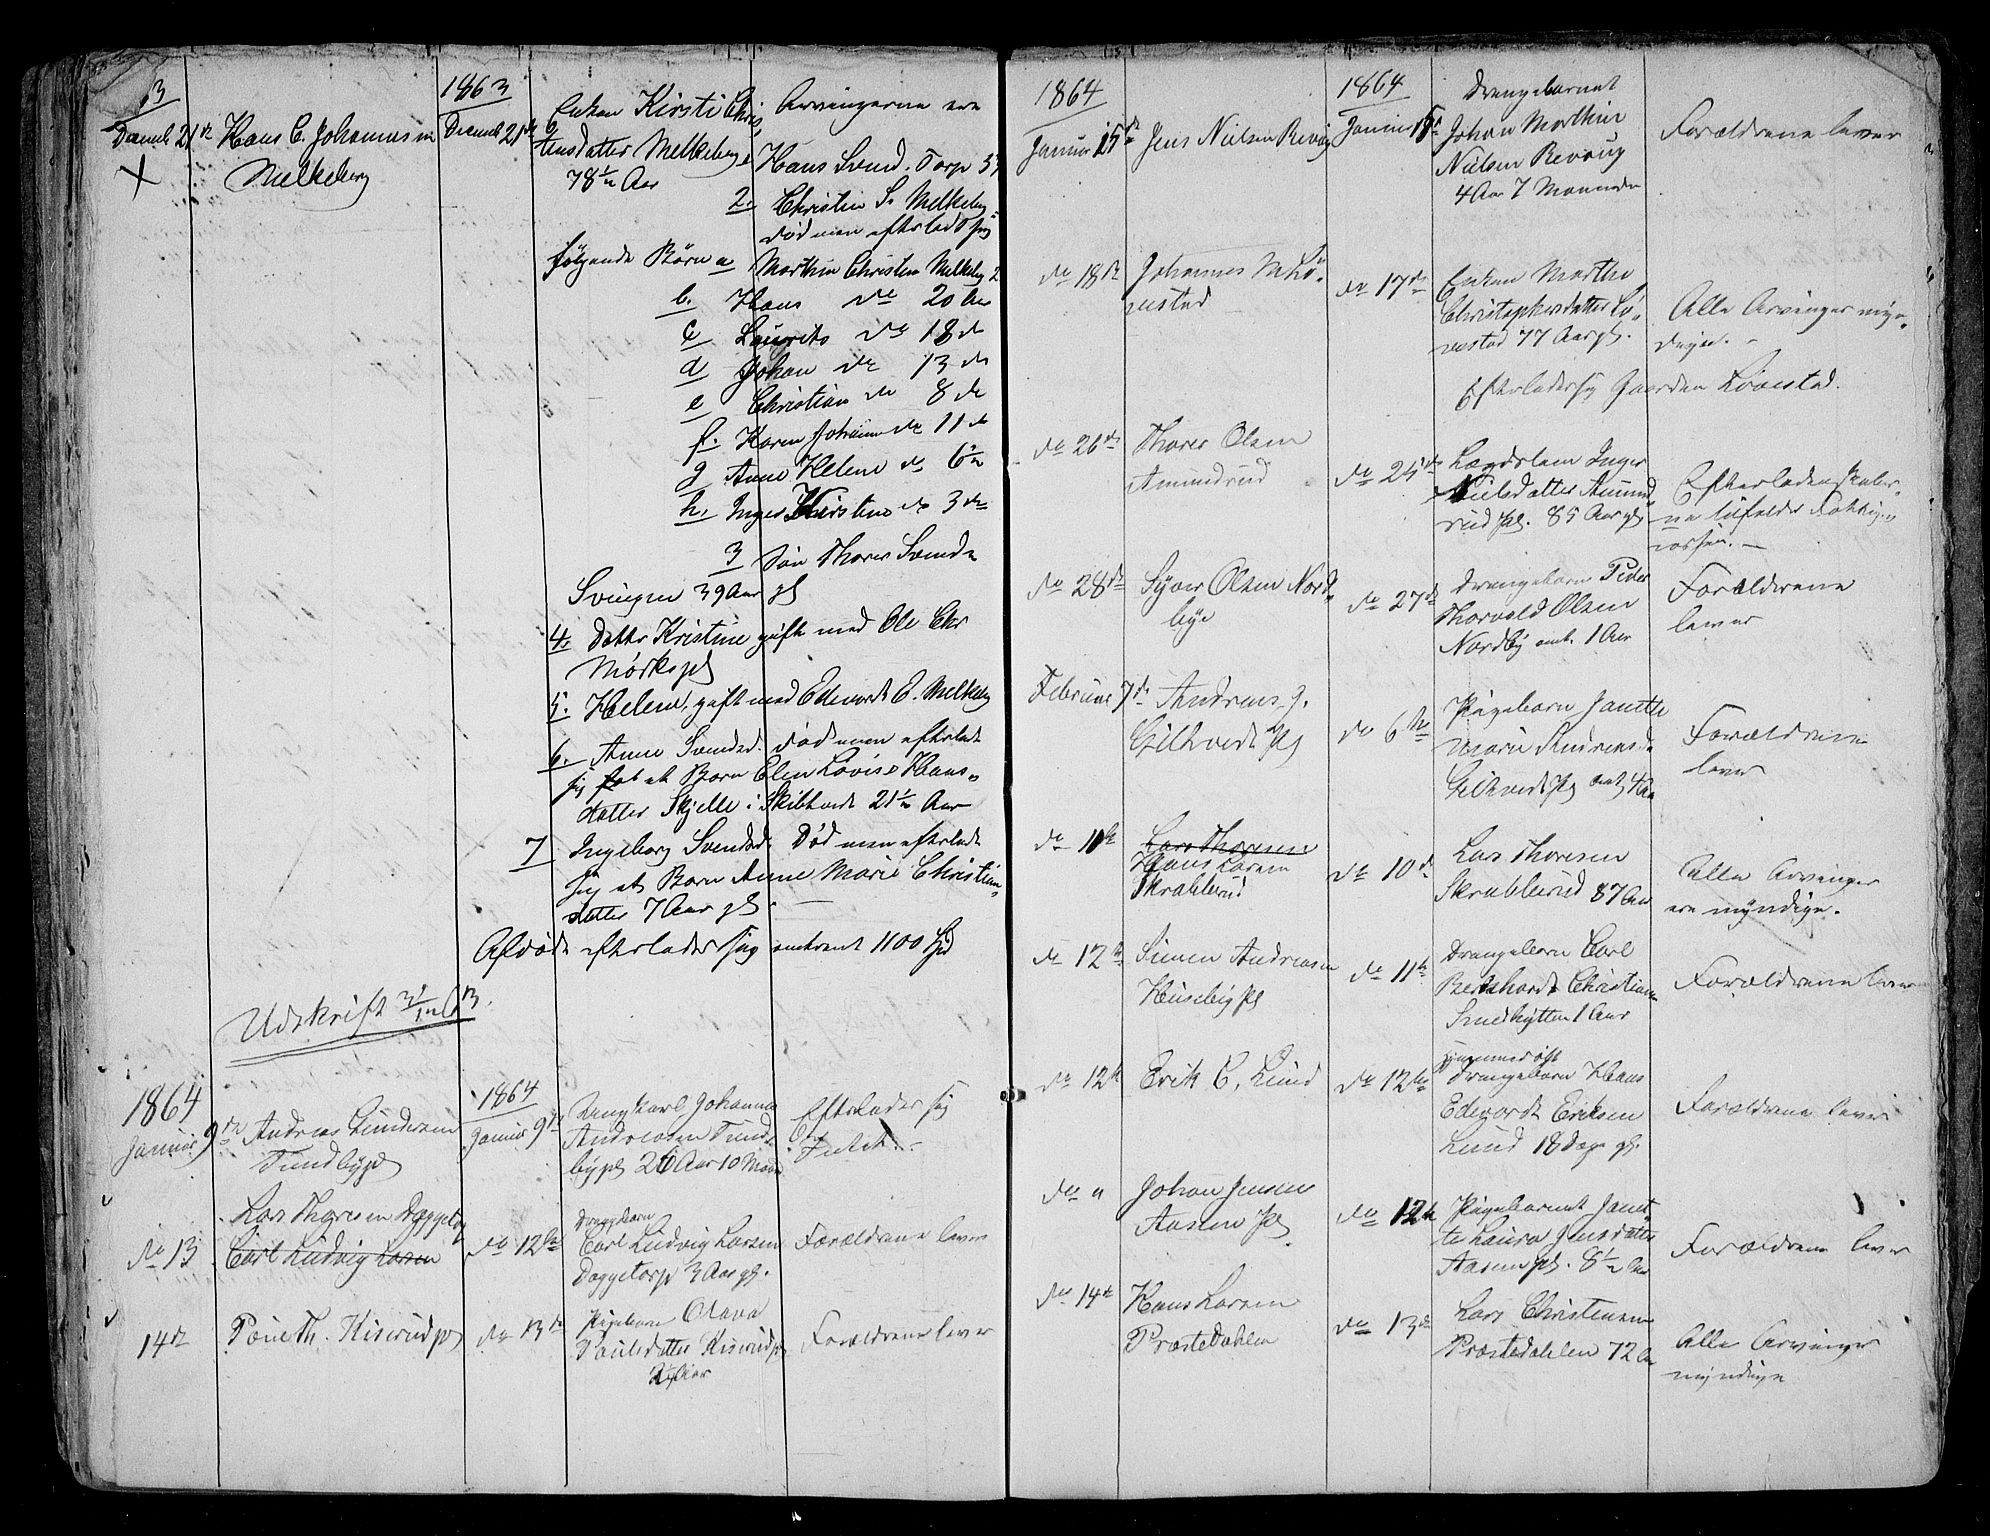 1863
Decemb 21de
Hans C. Johannesen
Melkeberg
Decemb 21de
Enken Kirsti Chris,
tensdatter Melkeberg
78½ Aar
Arvingerne ere
Hans Svend. Torp
2. Christen S. Melkeberg
død men efterladt sig
følgende Børn a Marthin Christen Melkeberg
b. Hans do 20 Aar
c Laurits do 18 do
d Johan do 13 do
e Christian do 8 do
f. Karen Johanne do 11 do
g Anne Helene do 6½
h. Inger Kirstine do 3 do
3 Søn Thorer Svends
Svingen 39 Aar gl
4. Datter Kristine gift med Ole Chr
Mørkspl
5. Helene, gift med Edevardt E. Melkeberg
6. Anne Svendsd. død men efterladt
sig et Barn Elen Lovise Hans-
datter Skjelle i Skibtvedt 21½ Aar
7 Ingeborg Svendsd. Død men efterladt
sig et Barn Anne Marie Christian-
datter 7 Aar gl.
Afdøde efterlader sig omtrent 1100 Spd
Udskrift 31/12 63.
1864
Januar 9de
Andreas Gundersen
Tundbypl
1864
Januar 9de
Ungkarl Johannes
Andreasen Tund-
bypl 26 Aar 10 Maan
Efterlader sig
Intet.
do 13
Lars Thoresen Daggetorp
Carl Ludvig Larsen
do 12te
Drengebarn
Carl Ludvig Larsen
Daggetorp 3 Aar gl.
Forældrene lever
14de
Poul Th. Kiserudpl
do 13de
Pigebarn Olava
Poulsdatter Kiserudpl
Aar
Forældrene lever
1864
Januar 15de
Jens Nielsen Revoug
1864
Januar
Drengebarnet
Johan Marthin
Nielsen Revoug
4 Aar 7 Maaneder
Forældrene lever
do 18de
Johannes M. Lø-
vestad
do 17de
Enken Marthe
Christophersdatter Lø-
vestad 77 Aar gl.
Alle Arvinger myn-
dige. -
Efterlader sig Gaarden Løvestad.
do 26de
Thorer Olsen
Amundrud
do 25de
Lægdslem Inger
Nielsdatter Amund
rud pl. 85 Aar gl
Efterladenskaber-
ne tilfalder Fattig-
kassen. -
do 28de
Syver Olsen Nord-
bye
do 27de
Drengebarn Peder
Thorvald Olsen
Nordby omt. 1 Aar
Forældrene
lever
Februar 7de
Andreas J.
Gilhvedt pl
do 6te
Pigebarn Janette
Marie Andreasd
Gilhvedt pl omt 4 Aar
Forældrene
lever
do 11te
Lars Thoresen
Hans Larsen
Skrablerud
do 10de
Lars Thoresen
Skrablerud 87 Aar
Alle Arvinger
ere myndige.
do 12te
Simen Andreasen
Huseby pl
do 11te
Drengebarn Carl
Bernhardt Christian
Smedhytten 1 Aar
Forældrene lever
do 12te
Erik C. Lund
do 12te
hjemmedøbt
Drengebarn Hans
Edevardt Eriksen
Lund 18 Dage gl.
Forældrene lever
do "
Johan Jensen
Aasen pl
do 12te
Pigebarnet Janet-
te Laura Jensdatter
Aasen pl. 8½ Aar
Forældrene lever
do 14de
Hans Larsen
Præstedahlen
do 13de
Lars Christensen
Præstedahlen 72 Aar
Alle Arvinger
myndige